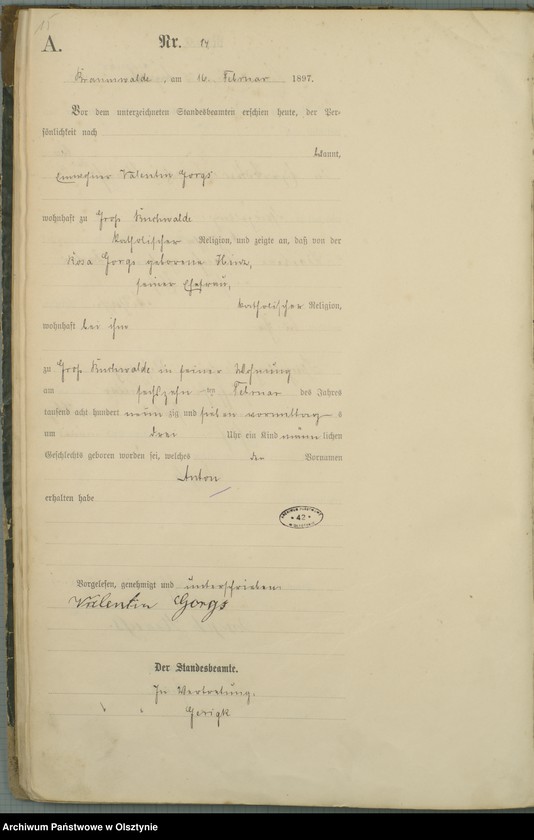 15
A.
Nr. 14
am 16. Februar 1897.
Vor dem unterzeichneten Standesbeamten erschien heute, der Per-
sönlichkeit nach
bekannt,
Einwohner Valentin Gorgs
wohnhaft zu Groß
katholischer Religion, und zeigte an, daß von der
Rosa Gorgs geborene
seiner Ehefrau,
katholischer Religion,
wohnhaft bei ihm
zu Groß in seiner Wohnung
am sechszehn ten Februar des Jahres
tausend acht hundert neun zig und sieben vormittag s
um drei Uhr ein Kind männ lichen
Geschlechts geboren worden sei, welches den Vornamen
Anton
erhalten habe
42
Vorgelesen, genehmigt und unterschrieben
Valentin Gorgs
Der Standesbeamte.
In Vertretung.
Gerigk
Archiwum Państwowe w Olsztynie